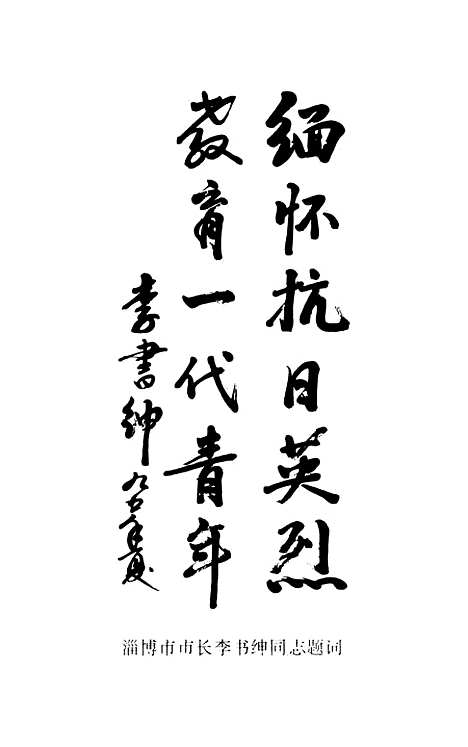 缅怀抗日英烈
教育一代青年
李書绅 九五年夏
淄博市市长李书绅同志题词